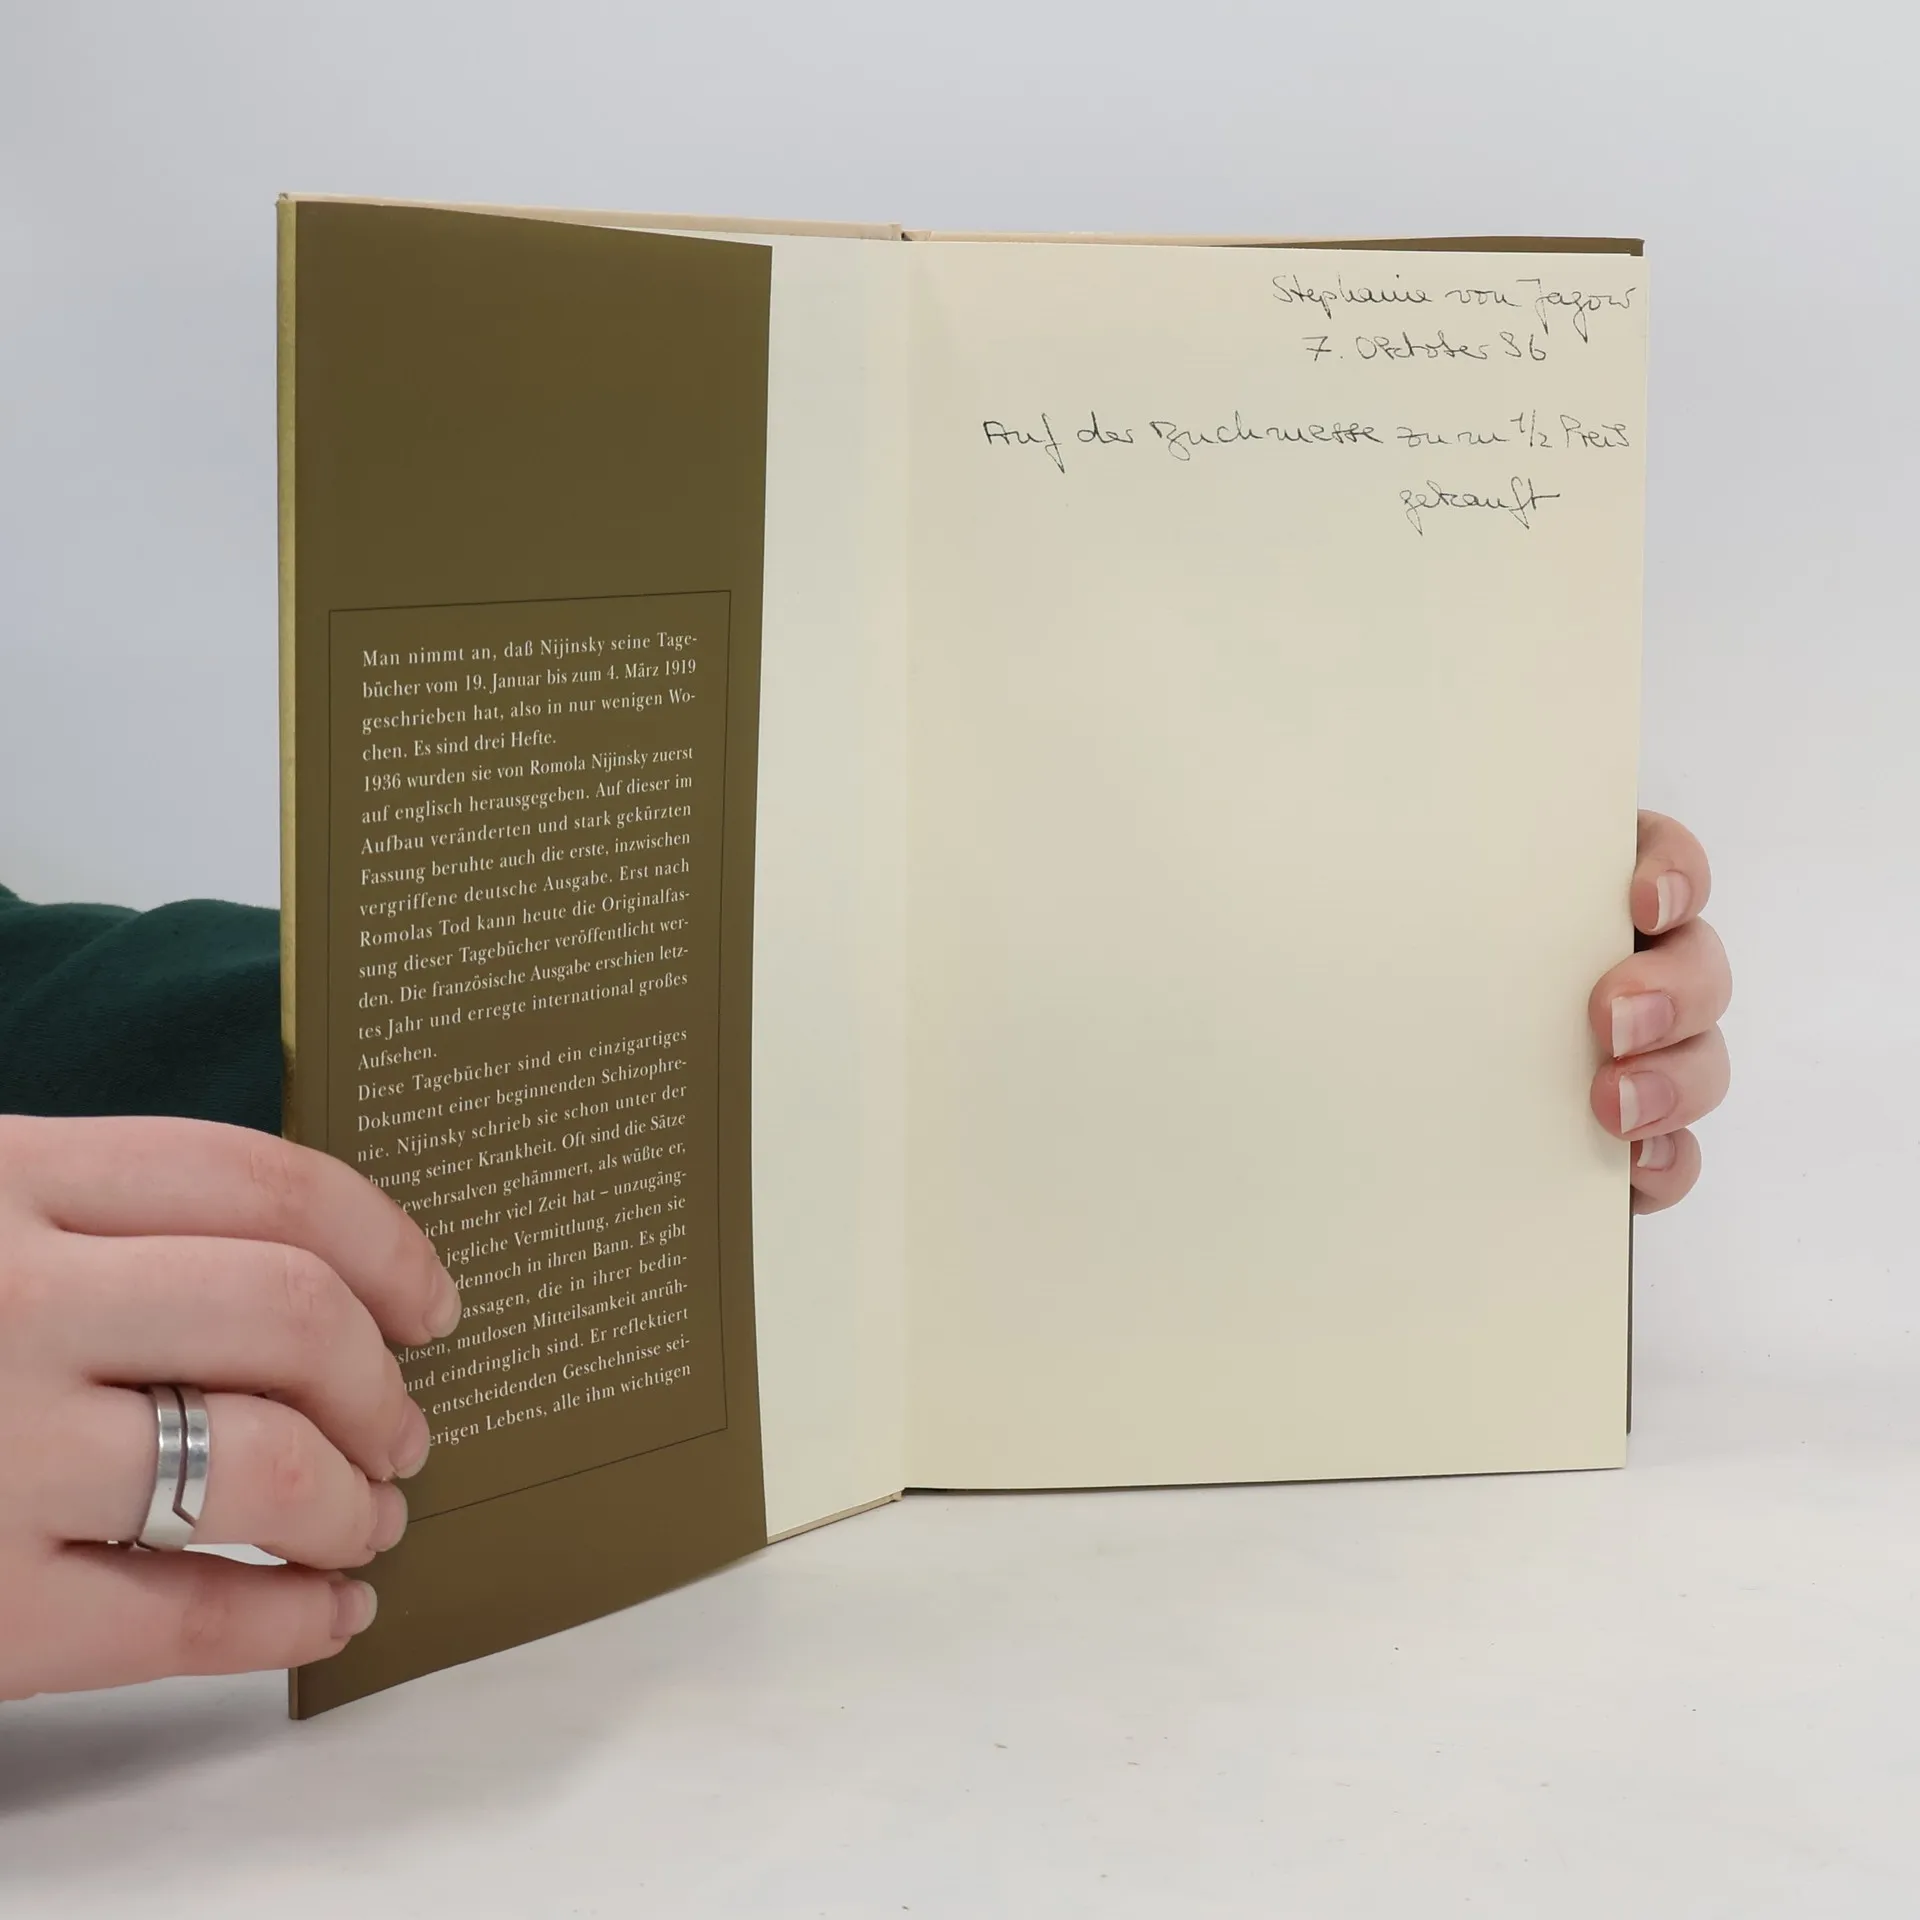 Man nimmt an, daß Nijinsky seine Tage-
bücher vom 19. Januar bis zum 4. März 1919
geschrieben hat, also in nur wenigen Wo-
chen. Es sind drei Hefte.
1936 wurden sie von Romola Nijinsky zuerst
auf englisch herausgegeben. Auf dieser im
Aufbau veränderten und stark gekürzten
Fassung beruhte auch die erste, inzwischen
vergriffene deutsche Ausgabe. Erst nach
Romolas Tod kann heute die Originalfas-
sung dieser Tagebücher veröffentlicht wer-
den. Die französische Ausgabe erschien letz-
tes Jahr und erregte international großes
Aufsehen.
Diese Tagebücher sind ein einzigartiges
Dokument einer beginnenden Schizophre-
nie. Nijinsky schrieb sie schon unter der
hnung seiner Krankheit. Oft sind die Sätze
ewehrsalven gehämmert, als wüßte er,
icht mehr viel Zeit hat – unzugäng-
jegliche Vermittlung, ziehen sie
dennoch in ihren Bann. Es gibt
assagen, die in ihrer bedin-
slosen, mutlosen Mitteilsamkeit anrüh-
und eindringlich sind. Er reflektiert
entscheidenden Geschehnisse sei-
erigen Lebens, alle ihm wichtigen
Stephanie von Jagow
7. Oktober 96
Auf der Buchmesse zum 1/2 Preis
gekauft